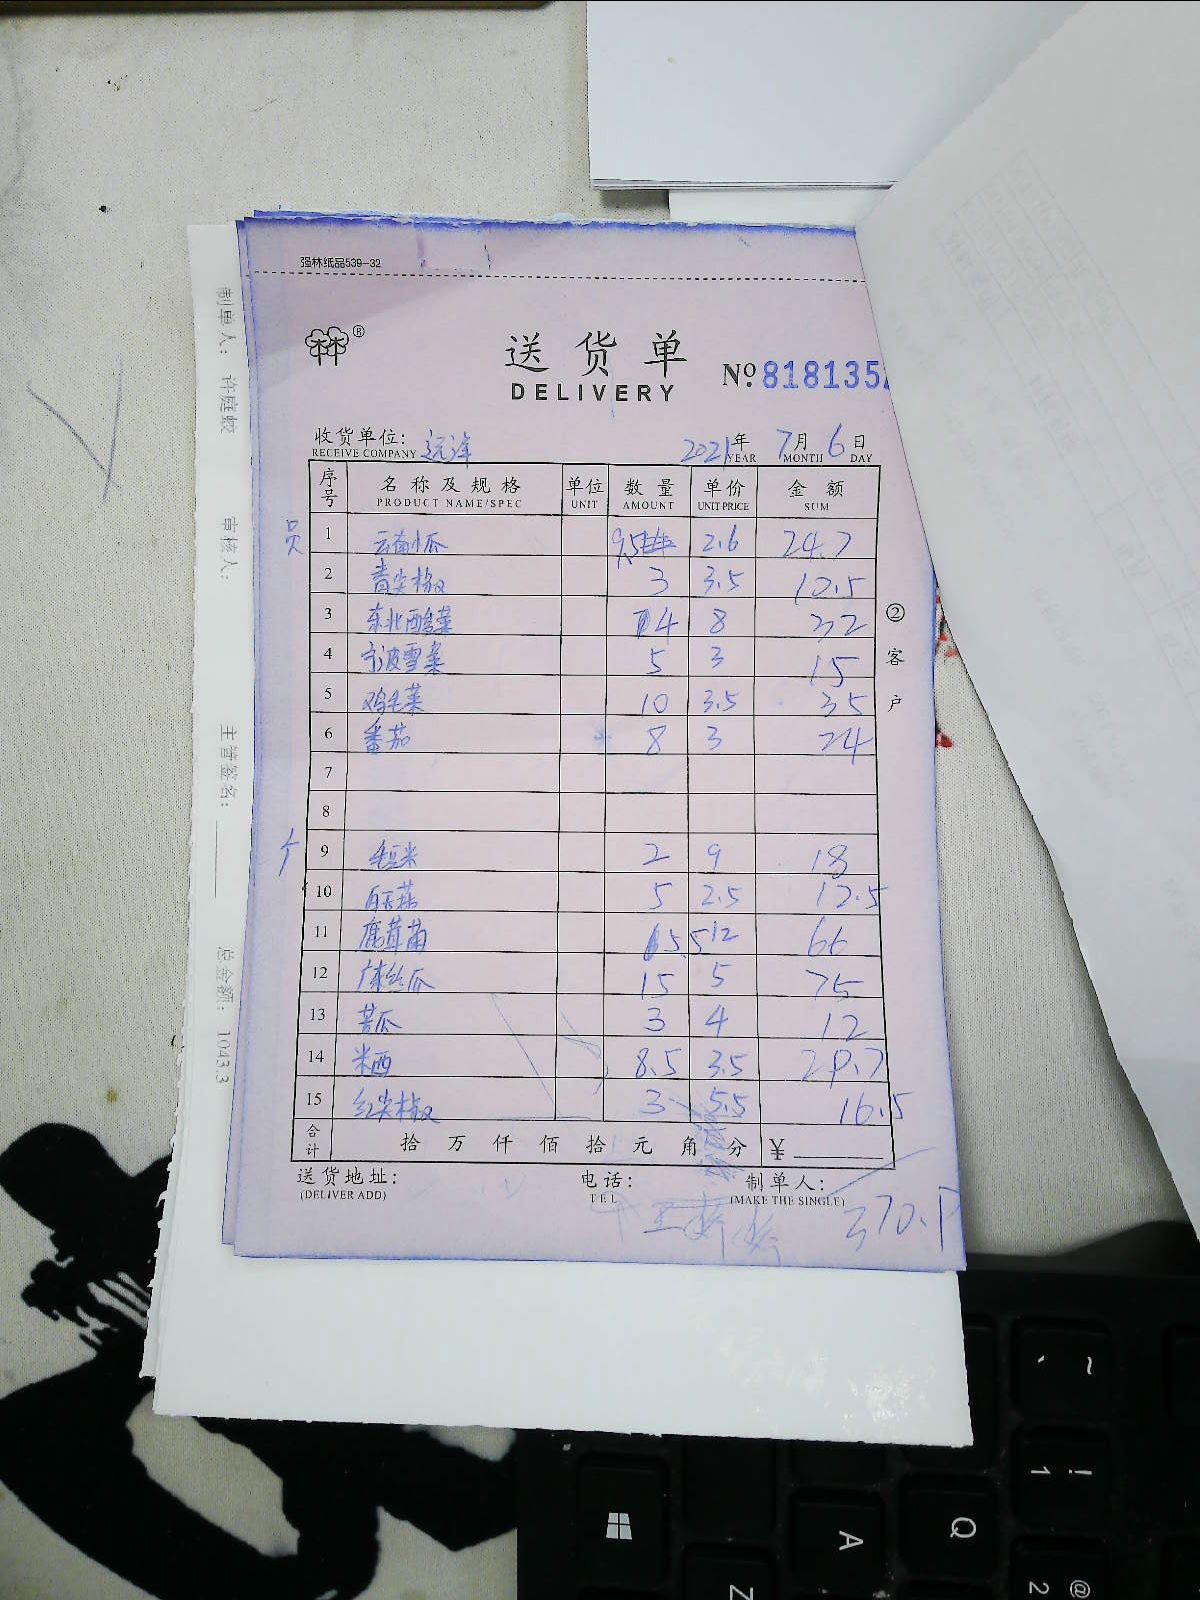 强林纸品539-32
®
送货单
DELIVERY
Nº 818135
收货单位: 远洋 2021年 7月 6日
RECEIVE COMPANY YEAR MONTH DAY
序号 名称及规格 单位 数量 单价 金额
PRODUCT NAME/SPEC UNIT AMOUNT UNIT PRICE SUM
员 1 云南小瓜 9.5 2.6 24.7
2 青尖椒 3 3.5 10.5
3 东北酸菜 4 8 32
4 宁波雪菜 5 3 15
5 鸡毛菜 10 3.5 35
6 番茄 8 3 24
7
8
9 毛豆米 2 9 18
10 5 2.5 12.5
11 鹿茸菌 5.5 12 66
12 广东丝瓜 15 5 75
13 苦瓜 3 4 12
14 米西 8.5 3.5 29.7
15 红尖椒 3 5.5 16.5
合计 拾万仟佰拾元角分 ¥
送货地址: 电话: 制单人:
(DELIVER ADD) TEL (MAKE THE SINGLE)
370.9
②客户
制单人: 许庭蛟
审核人:
主管签名:
总金额: 1043.3
~
`
!
1
Q
A
@
2
Z